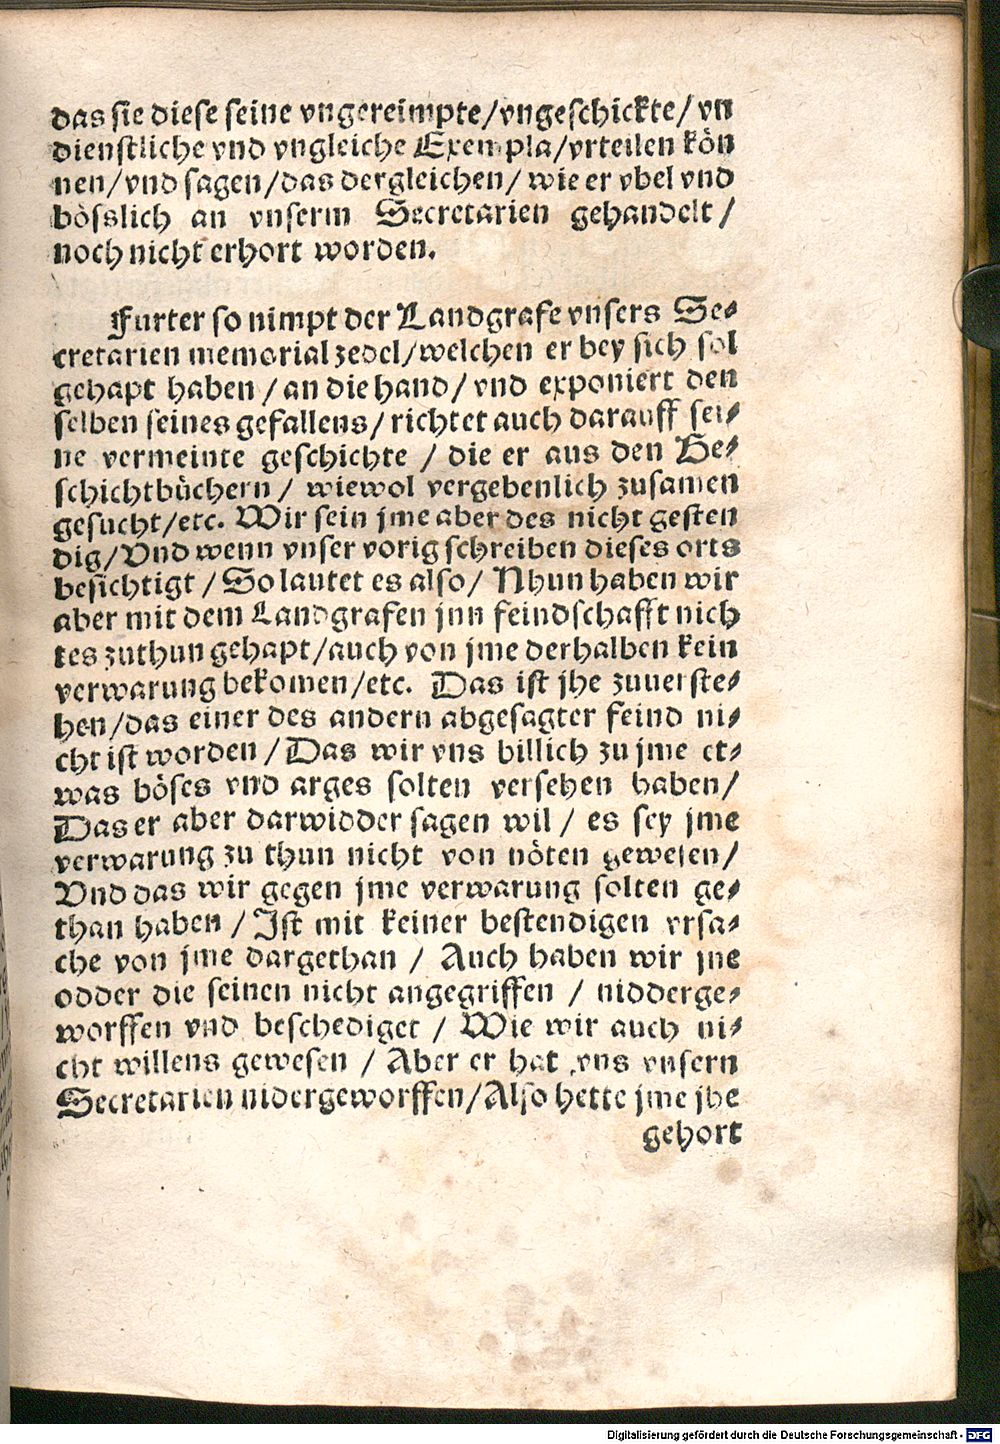 das sie diese seine vngereimpte/vngeschickte/vn
dienstliche vnd vngleiche Exempla/vrteilen kön
nen/vnd sagen/das dergleichen/ wie er vbel vnd
bösslich an vnserm Secretarien gehandelt/
noch nicht erhort worden.
Furter so nimpt der Landgrafe vnsers Se⸗
cretarien memorial zedel/welchen er bey sich sol
gehapt haben/an die hand/vnd exponiert den
selben seines gefallens/richtet auch darauff sei⸗
ne vermeinte geschichte/die er aus den Ge⸗
schichtbüchern/ wiewol vergebenlich zusamen
gesucht/etc. Wir sein jme aber des nicht gesten
dig/Vnd wenn vnser vorig schreiben dieses orts
besichtigt/So lautet es also/Nhun haben wir
aber mit dem Landgrafen jnn feindschafft nich
tes zuthun gehapt/auch von jme derhalben kein
verwarung bekomen/etc. Das ist jhe zuuerste⸗
hen/das einer des andern abgesagter feind ni⸗
cht ist worden/Das wir vns billich zu jme et⸗
was böses vnd arges solten versehen haben/
Das er aber darwidder sagen wil/ es sey jme
verwarung zu thun nicht von nöten gewesen/
Vnd das wir gegen jme verwarung solten ge⸗
than haben/Ist mit keiner bestendigen vrsa⸗
che von jme dargethan/ Auch haben wir jne
odder die seinen nicht angegriffen/ nidderge⸗
worffen vnd beschediget/ Wie wir auch ni⸗
cht willens gewesen/Aber er hat vns vnsern
Secretarien nidergeworffen/Also hette jme jhe
gehort
Digitalisierung gefördert durch die Deutsche Forschungsgemeinschaft - DFG